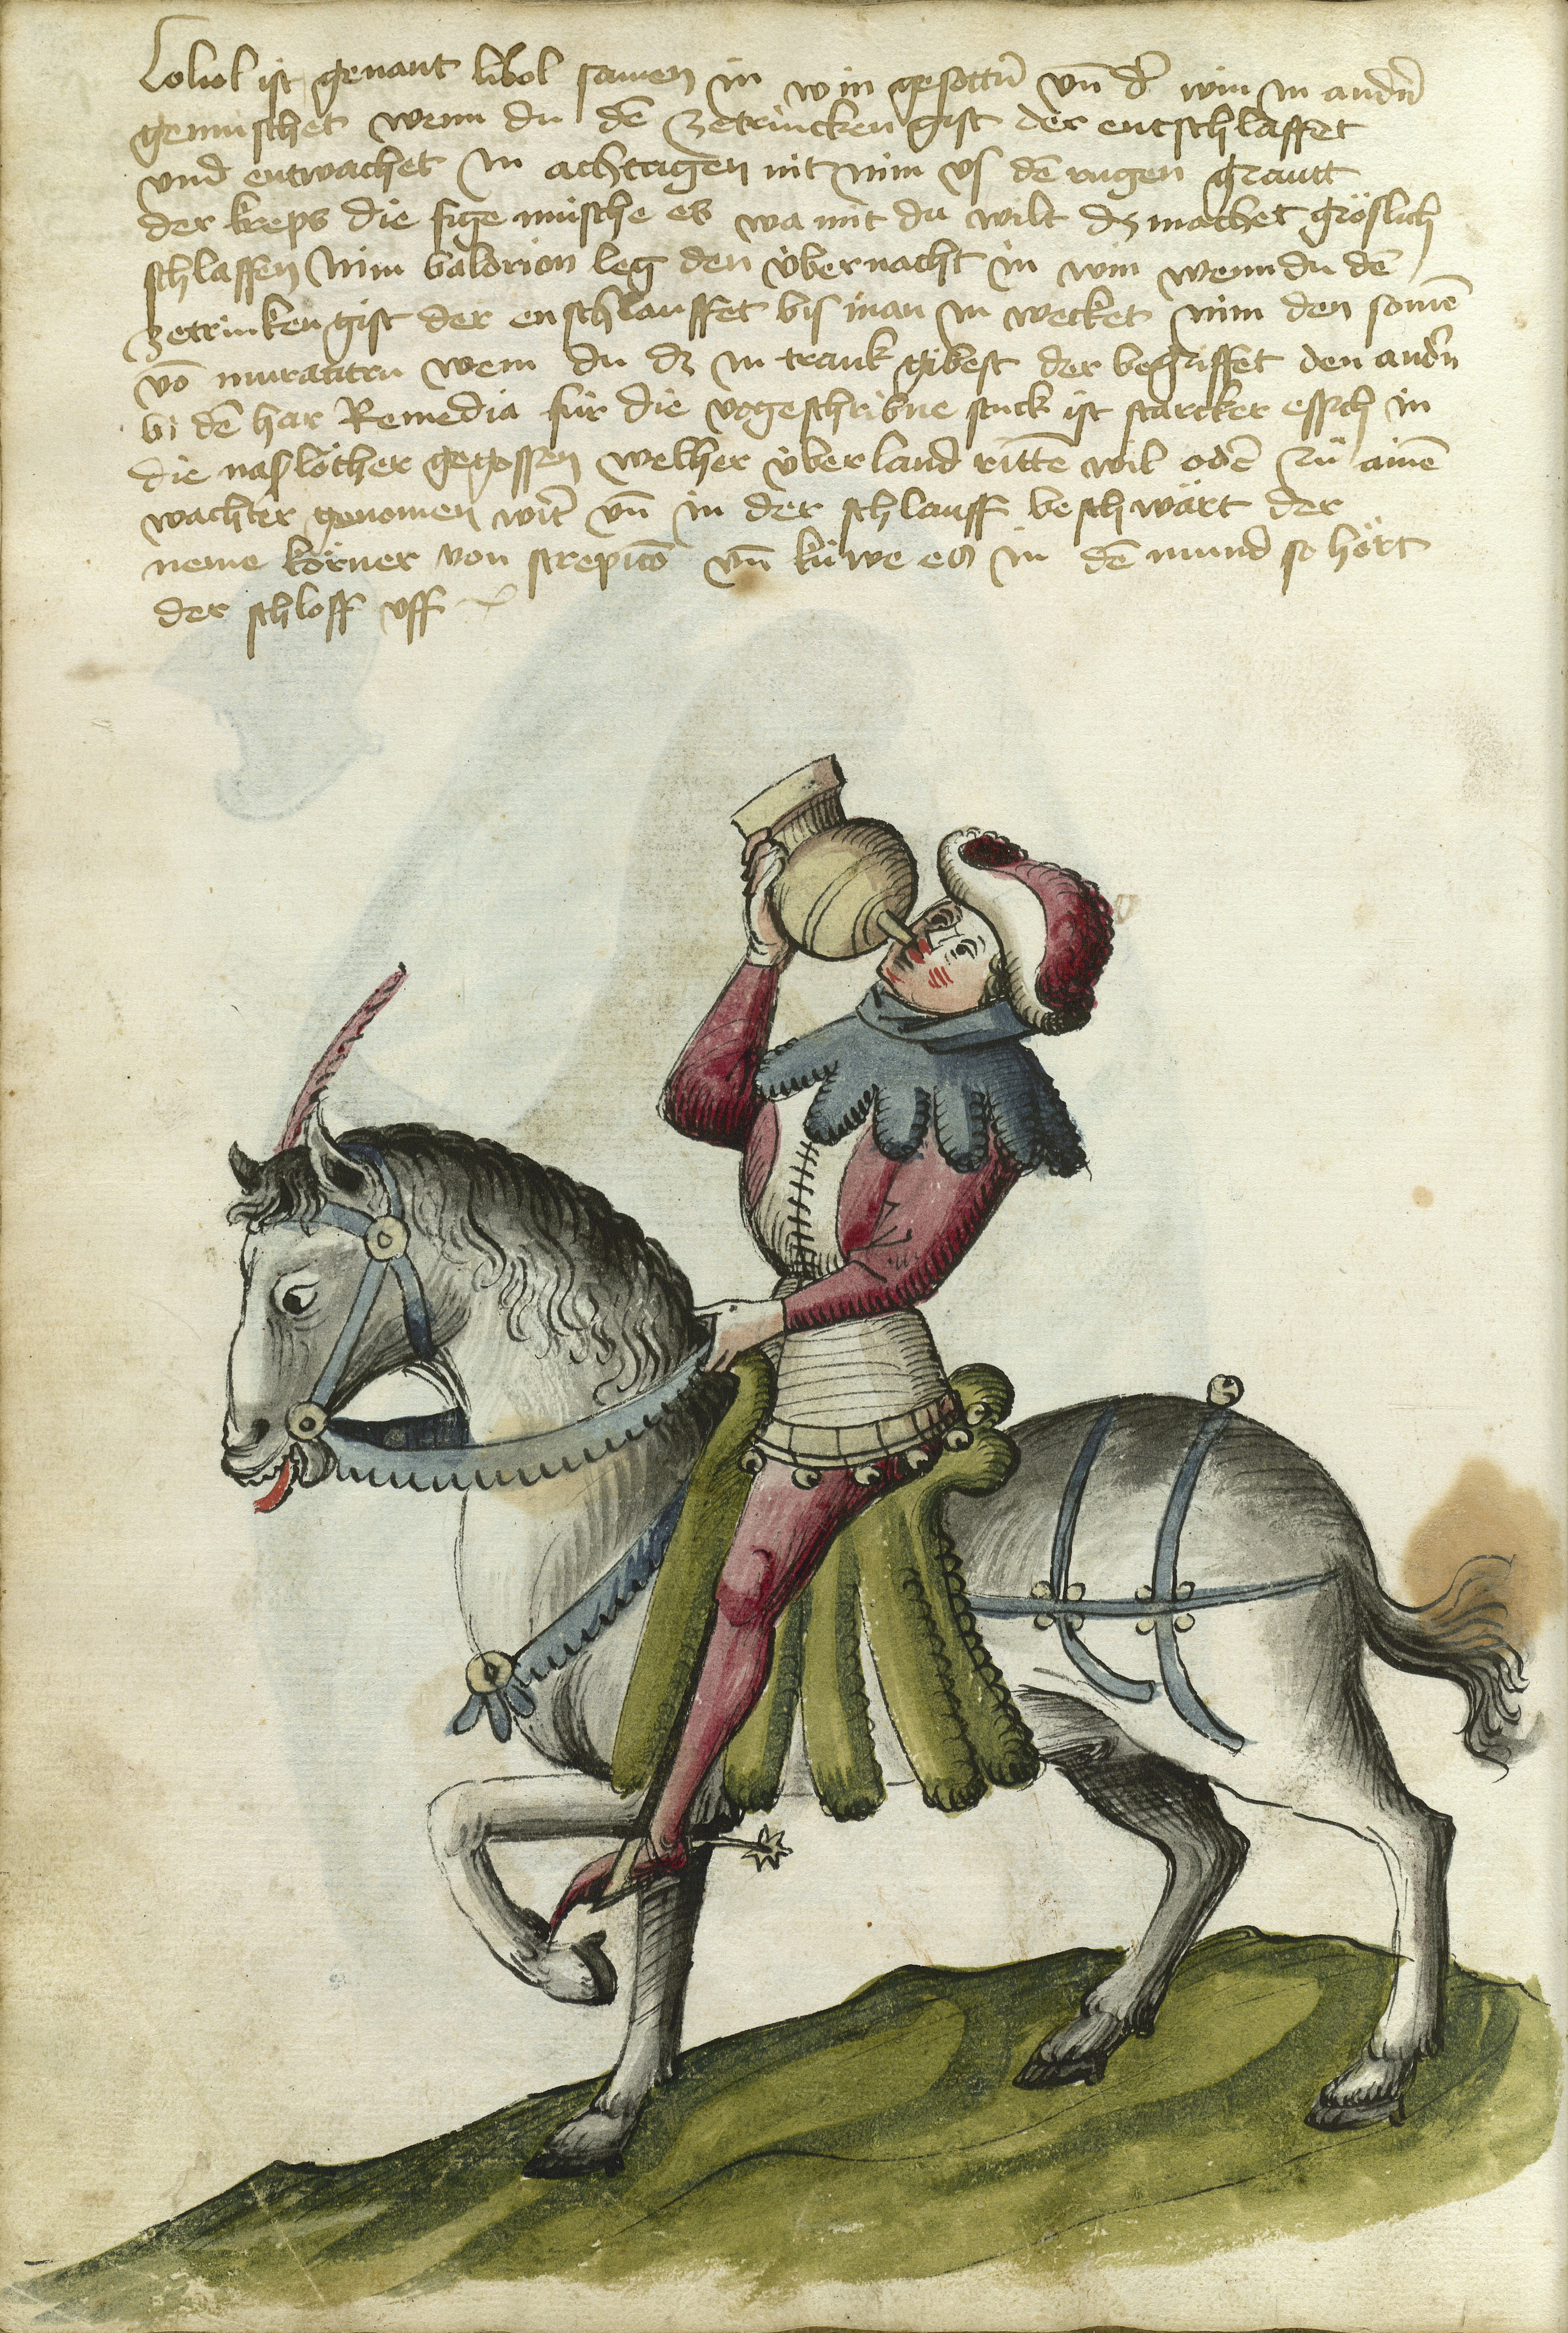 Loliol ist genant lilol samen in win gesottñ vñ dʼ win in andʼñ
gemischet wenn du dē zetrincken gist der entschlaffet
vnd entwachet in achtagen nit nim vs dē rugen grautt
der kreps die fige mische es wa mit du wilt dz machet gröslich
schlaffen Nim baldrion leg den v̈ber nacht in win wenn du dē
zetrinken gist der enschlauffet bis man in wecket nim den somē
vō wem du dz in trank gibest der begriffet den andʼn
bi dē har Remedia für die vogeschribne stuck ist starcker essich in
die naslöcher gegossen welher v̈ber land rittē wil odē zů ainē
wachter genomen wirt vñ in der schlauff beschwärt der
neme körner von vñ küwe es in dē mund so hört
der schloff vff